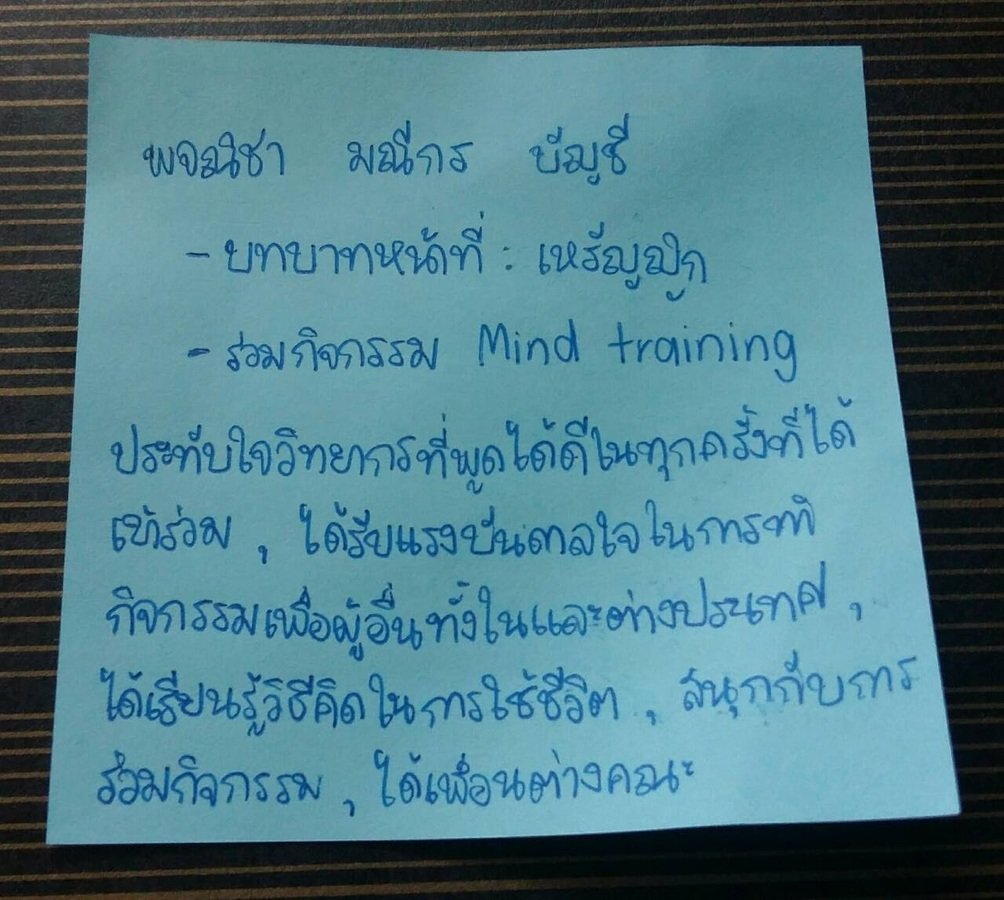 พจณิชา มณีกร บัญชี
- บทบาทหน้าที่ : เหรัญญิก
- ร่วมกิจกรรม Mind training
ประทับใจวิทยากรที่พูดได้ดีในทุกครั้งที่ได้
เข้าร่วม , ได้รับแรงบันดาลใจในการทำ
กิจกรรมเพื่อผู้อื่นทั้งในและต่างประเทศ ,
ได้เรียนรู้วิธีคิดในการใช้ชีวิต , สนุกกับการ
ร่วมกิจกรรม , ได้เพื่อนต่างคณะ